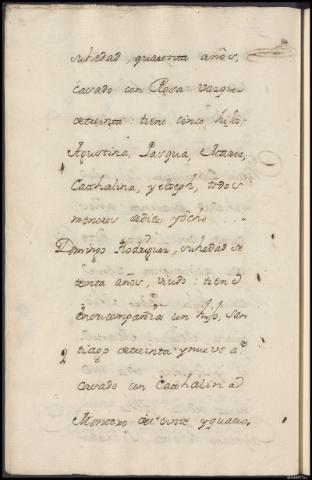 suhedad, quarenta años,
casado con Rosa Vazquez
detreinta: tiene cinco hijos
Agustina, Pasqua, Maria,
Cathalina, y Joseph, todos
menores dediez yocho....
Domingo Rodriguez, suhedad se
tenta años, viudo: tiene
ensucompañia un hijo, San
2 tiago detreinta ynueve a.s
casado con Cathalina
Montero de veinte yquatro,